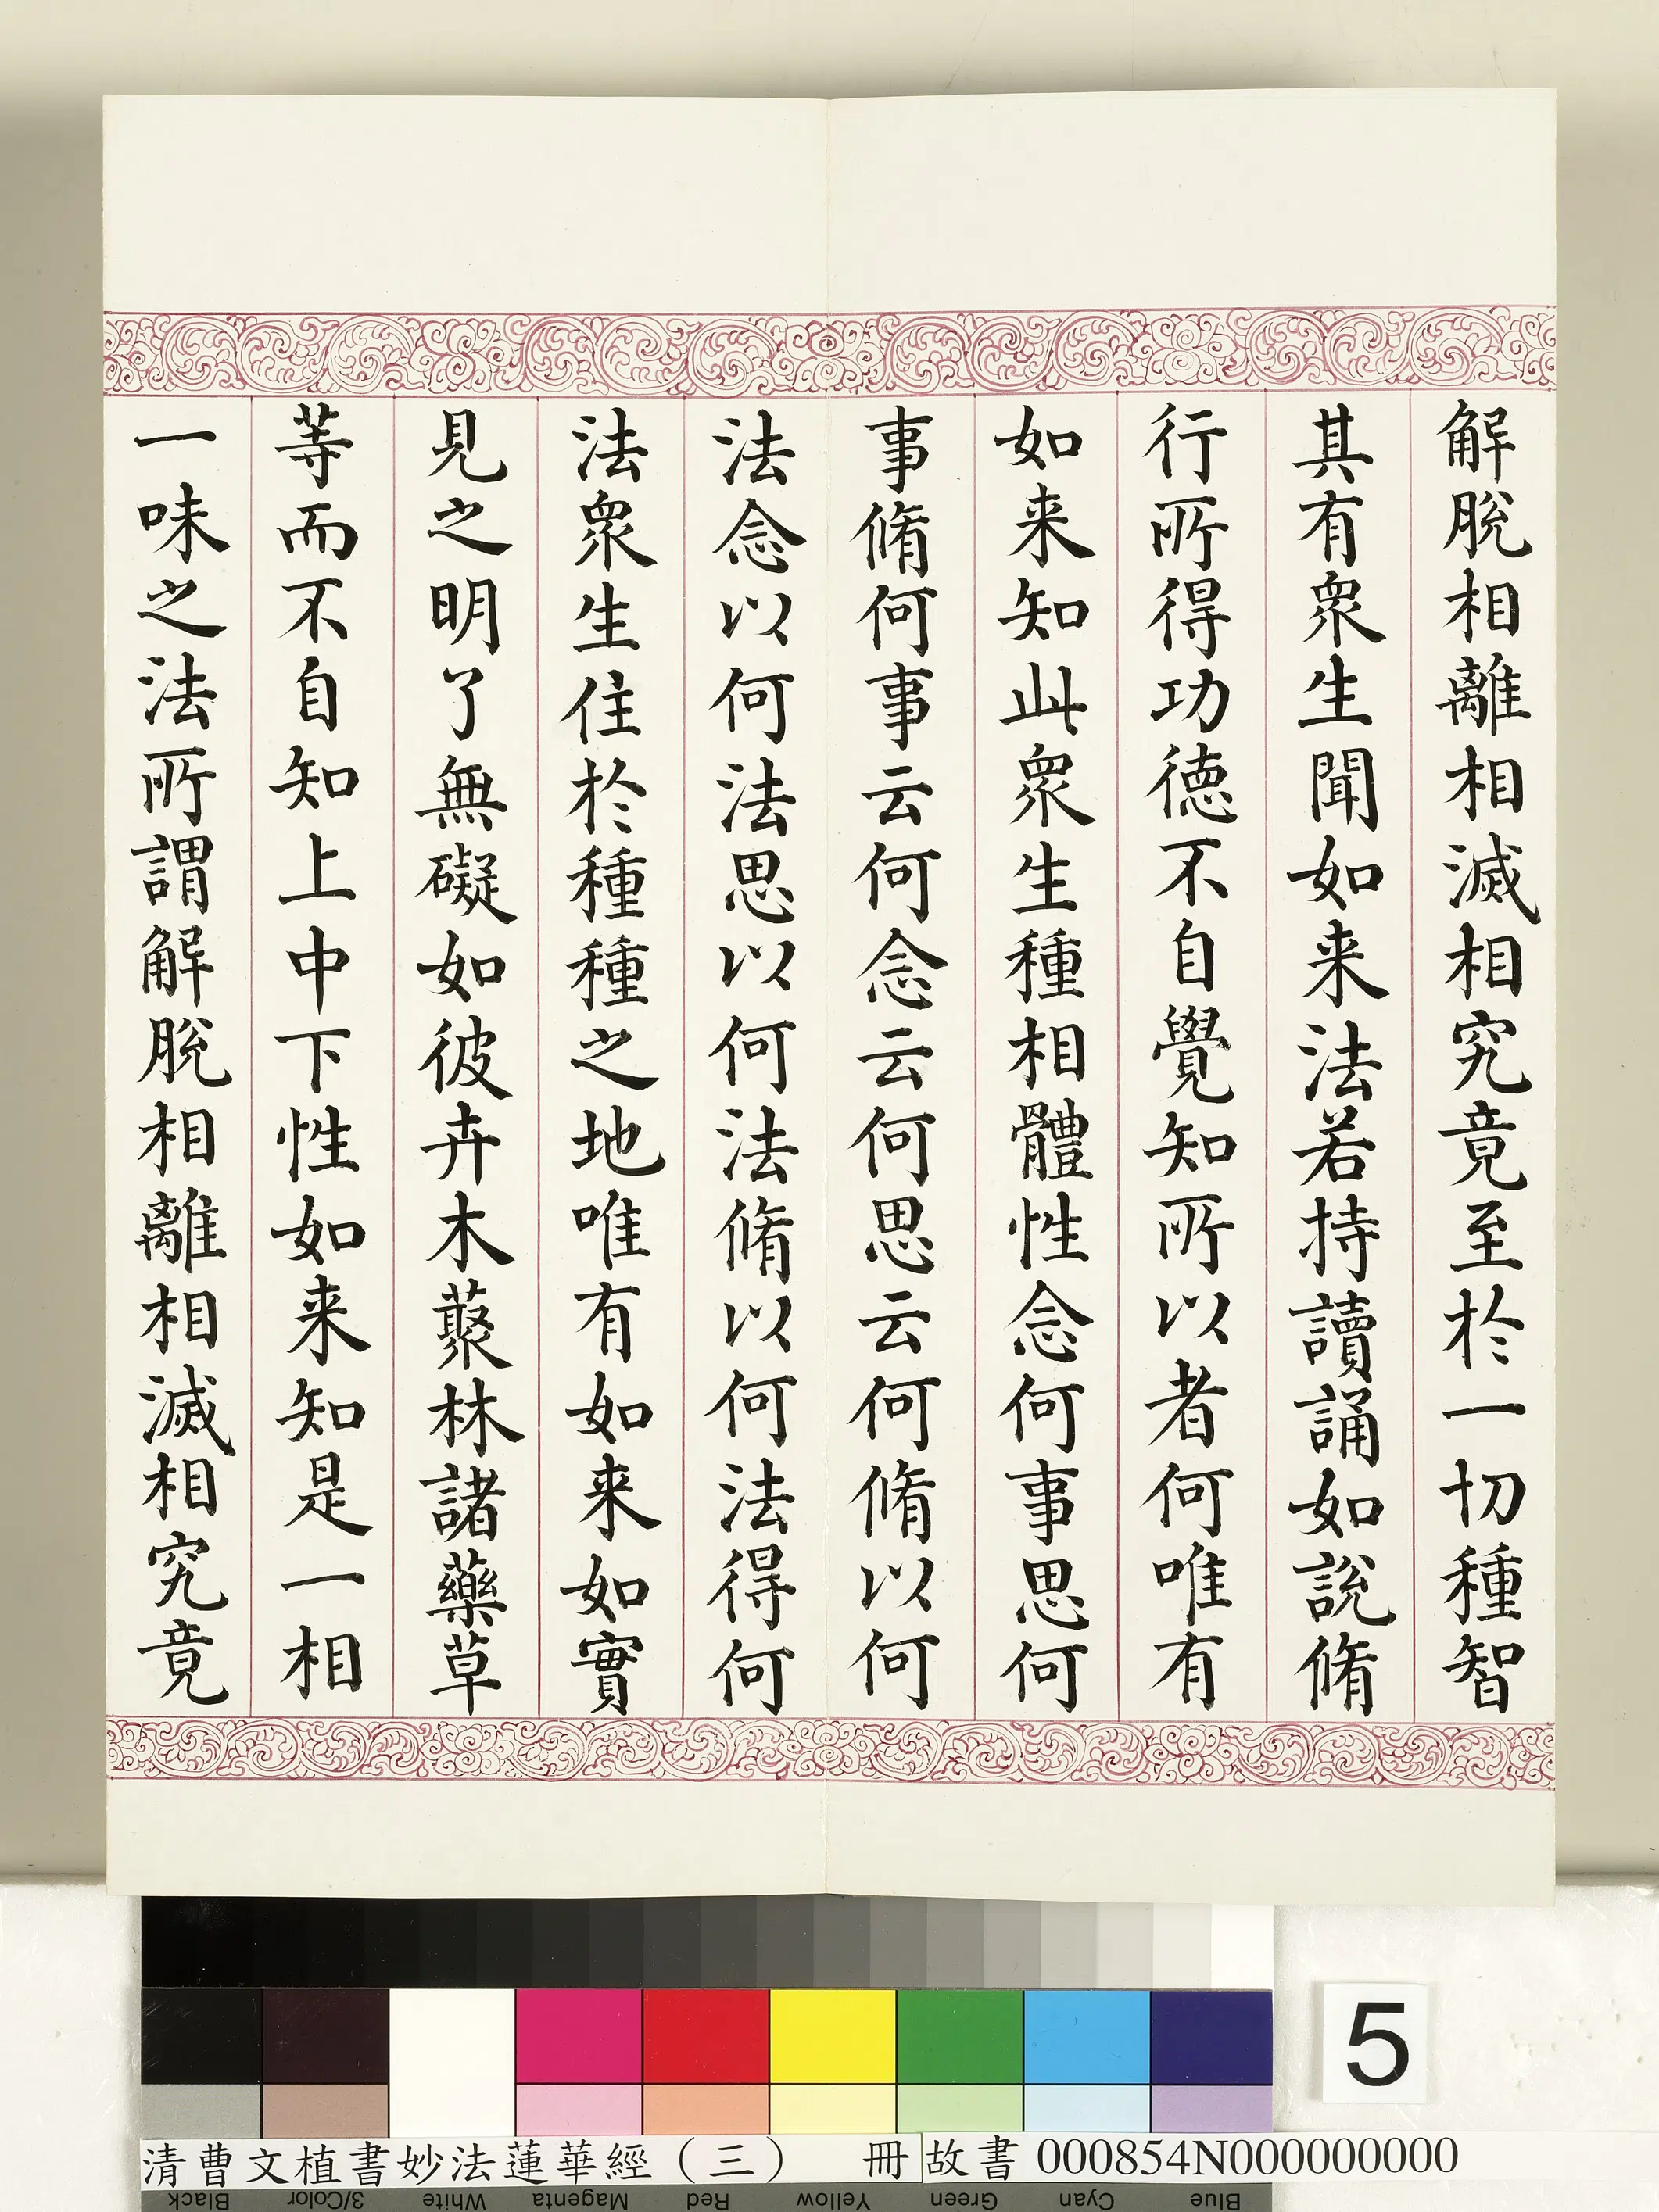 解脫相離相滅相究竟至於一切種智
其有衆生聞如来法若持讀誦如說脩
行所得功德不自覺知所以者何唯有
如来知此衆生種相體性念何事思何
事脩何事云何念云何思云何脩以何
法念以何法思以何法脩以何法得何
法衆生住於種種之地唯有如来如實
見之明了無礙如彼卉木藂林諸藥草
等而不自知上中下性如来知是一相
一味之法所謂解脫相離相滅相究竟
5
清曹文植書妙法蓮華經（三） 冊 故書 000854N000000000
Black 3/Color White Magenta Red Yellow Green Cyan Blue